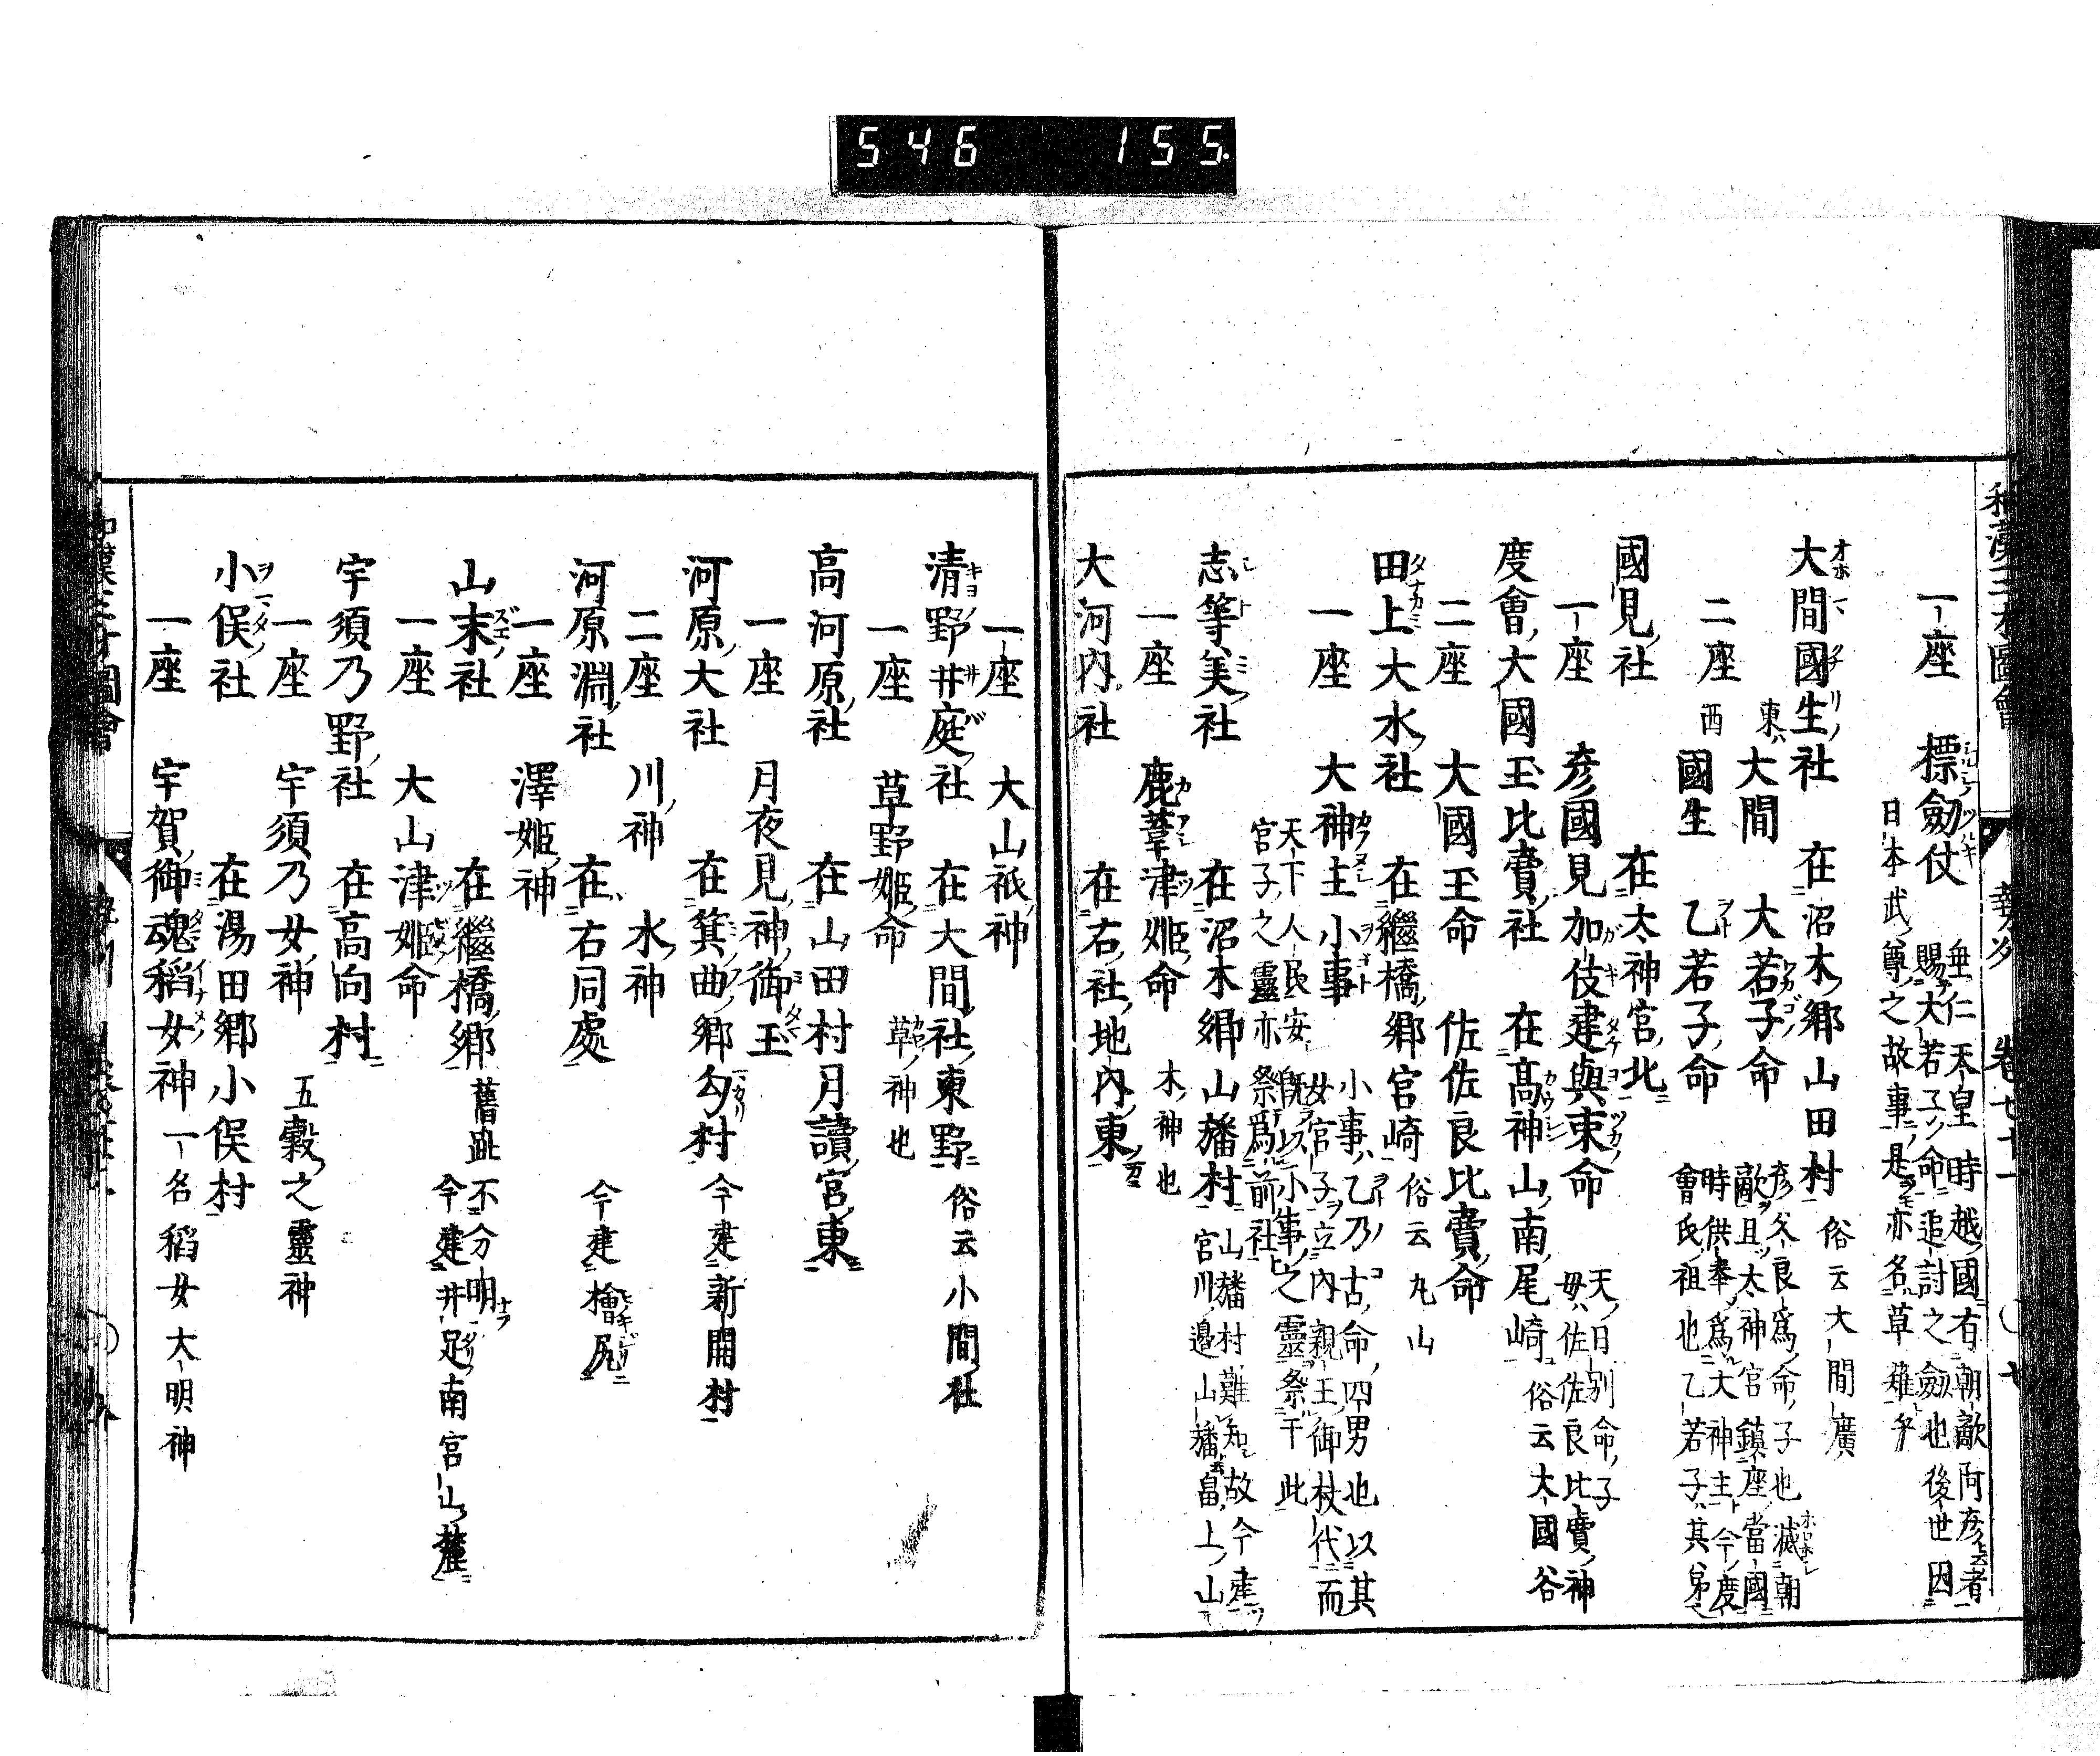 546 155
和漢三才圖會 勢州 卷七十一 ○ 七
一座 標劒仗 垂仁天皇時越國有朝敵阿彦云者
賜大若子命追討之劔也後世因
日本武尊之故事是亦名草薙乎
大間國生社 在沼木鄉山田村 俗云大間廣
二座 東大間 大若子命 彦久良爲命子也滅朝
敵且太神宮鎮座當國
西國生 乙若子命 時供奉爲大神主今度
會氏祖也乙若子其弟
國見社 在太神宮北
一座 彦國見加伎建與束命 天日別命子
母佐佐良比賣神
度會大國玉比賣社 在高神山南尾崎 俗云大國谷
二座 大國玉命 佐佐良比賣命
田上大水社 在繼橋鄉宮崎 俗云丸山
一座 大神主小事 小事乙乃古命四男也以其
女官子立內親王御杖代而
天下人民安既以小事之靈祭于此
官子之靈亦祭爲前社
志等美社 在沼木鄉山幡村 山幡村難知故今建
宮川邉山幡畠上山
一座 鹿葦津姬命 木神也
大河內社 在右社地內東
一座 大山祇神
清野井庭社 在大間社東野 俗云小間社
一座 草野姬命 草神也
高河原社 在山田村月讀宮東
一座 月夜見神御玉
河原大社 在箕曲鄉勾村 今建新開村
二座 川神 水神
河原淵社 在右同處 今建檜尻
一座 澤姬神
山末社 在繼橋鄉 舊趾不分明
今建井足南宮山麓
一座 大山津姬命
宇須乃野社 在高向村
一座 宇須乃女神 五穀之靈神
小俣社 在湯田鄉小俣村
一座 宇賀御魂稻女神 一名稻女大明神